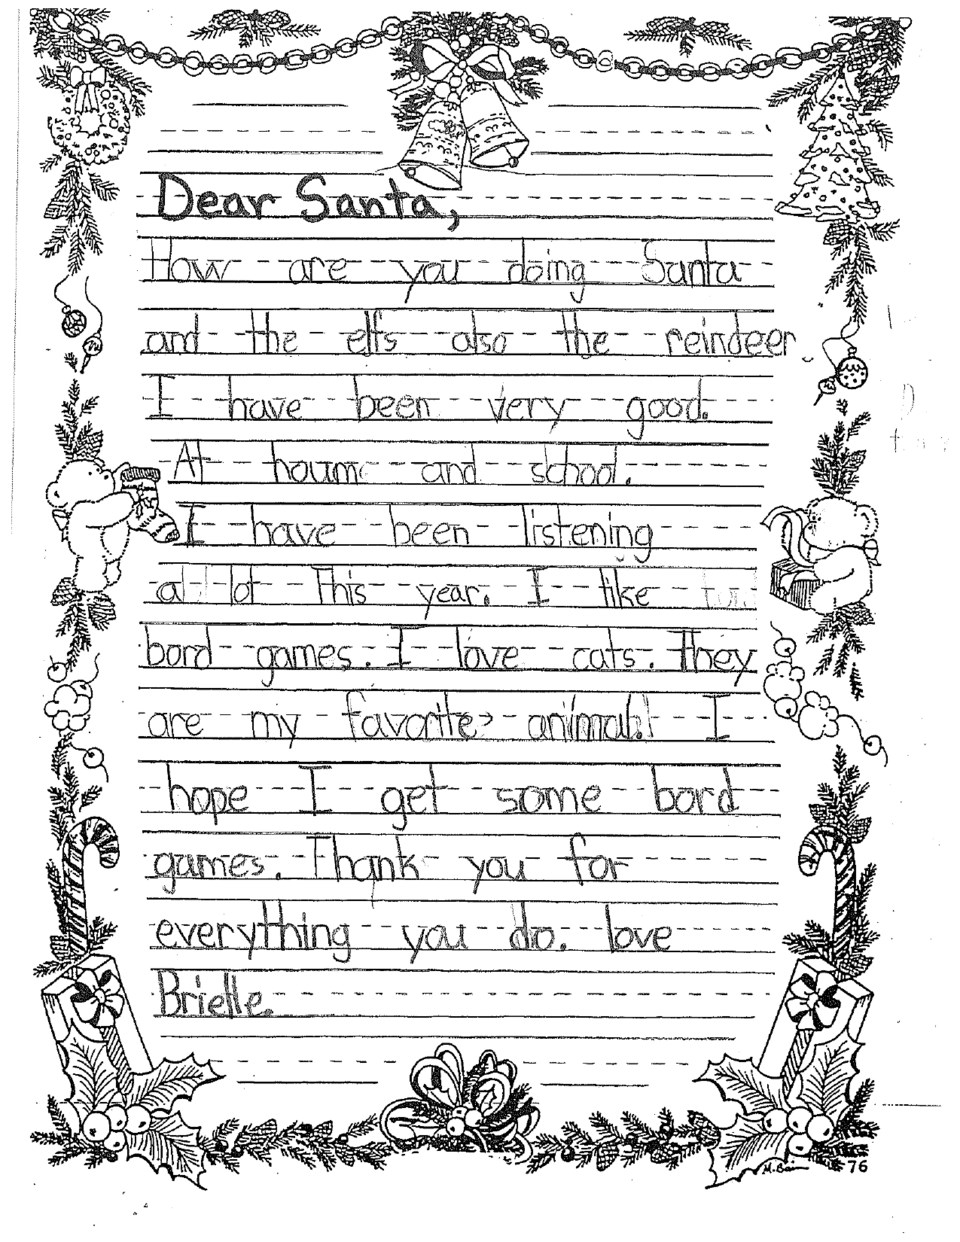 Dear Santa,
How are you doing Santa
and the elfs also the reindeer
I have been very good.
At houme and school.
I have been listening
al lot This year. I like
bord games. I love cats. They
are my favorite animal. I
hope I get some bord
games. Thank you for
everything you do. love
Brielle.
M. Bain 76